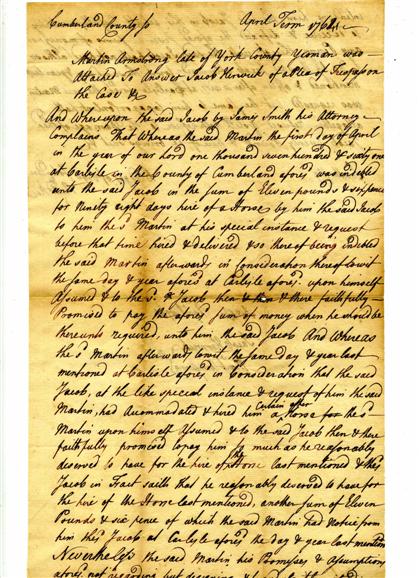 Cumberland County ss April Term 1762
Martin Armstrong late of York County Yeoman was
Attached to Answer Jacob Herwick of a Plea of Trespass on
the Case &c
And Whereupon the said Jacob by James Smith his Attorney
complains That Whereas the said Martin the first day of April
in the year of our Lord one thousand seven hundred & sixty one
at Carlisle in the County of Cumberland afores.d was indebted
unto the said Jacob in the sum of Eleven pounds & sixpence
for Ninety eight days hire of a Horse by him the said Jacob
to him the s.d Martin at his special instance & request
before that time hired & delivered & so thereof being indebted
the said Martin afterwards in Consideration thereof towit
the same day & year afores.d at Carlisle afores.d upon himself
Assumed & to the s.d Jacob then & there faithfully
Promised to pay the afores.d sum of money when he should be
thereunto required unto him the said Jacob And Whereas
the s.d Martin afterwards towit the same day & year last
mentioned at Carlisle afores.d in Consideration that the said
Jacob, at the like special instance & request of him the said
Martin, had Accommodated & hired him a certain other Horse for the s.d
Martin upon himself Assumed & to the said Jacob then & there
faithfully promised to pay him so much as he reasonably
deserved to have for the hire of the Horse last mentioned & the s.d
Jacob in Fact saith that he reasonably deserved to have for
the hire of the Horse last mentioned, another sum of Eleven
Pounds & six pence of which the said Martin had Notice from
him the s.d Jacob at Carlisle afores.d the day & year last mentioned
Nevertheless the said Martin his Promises & Assumptions
afores.d not regarding but